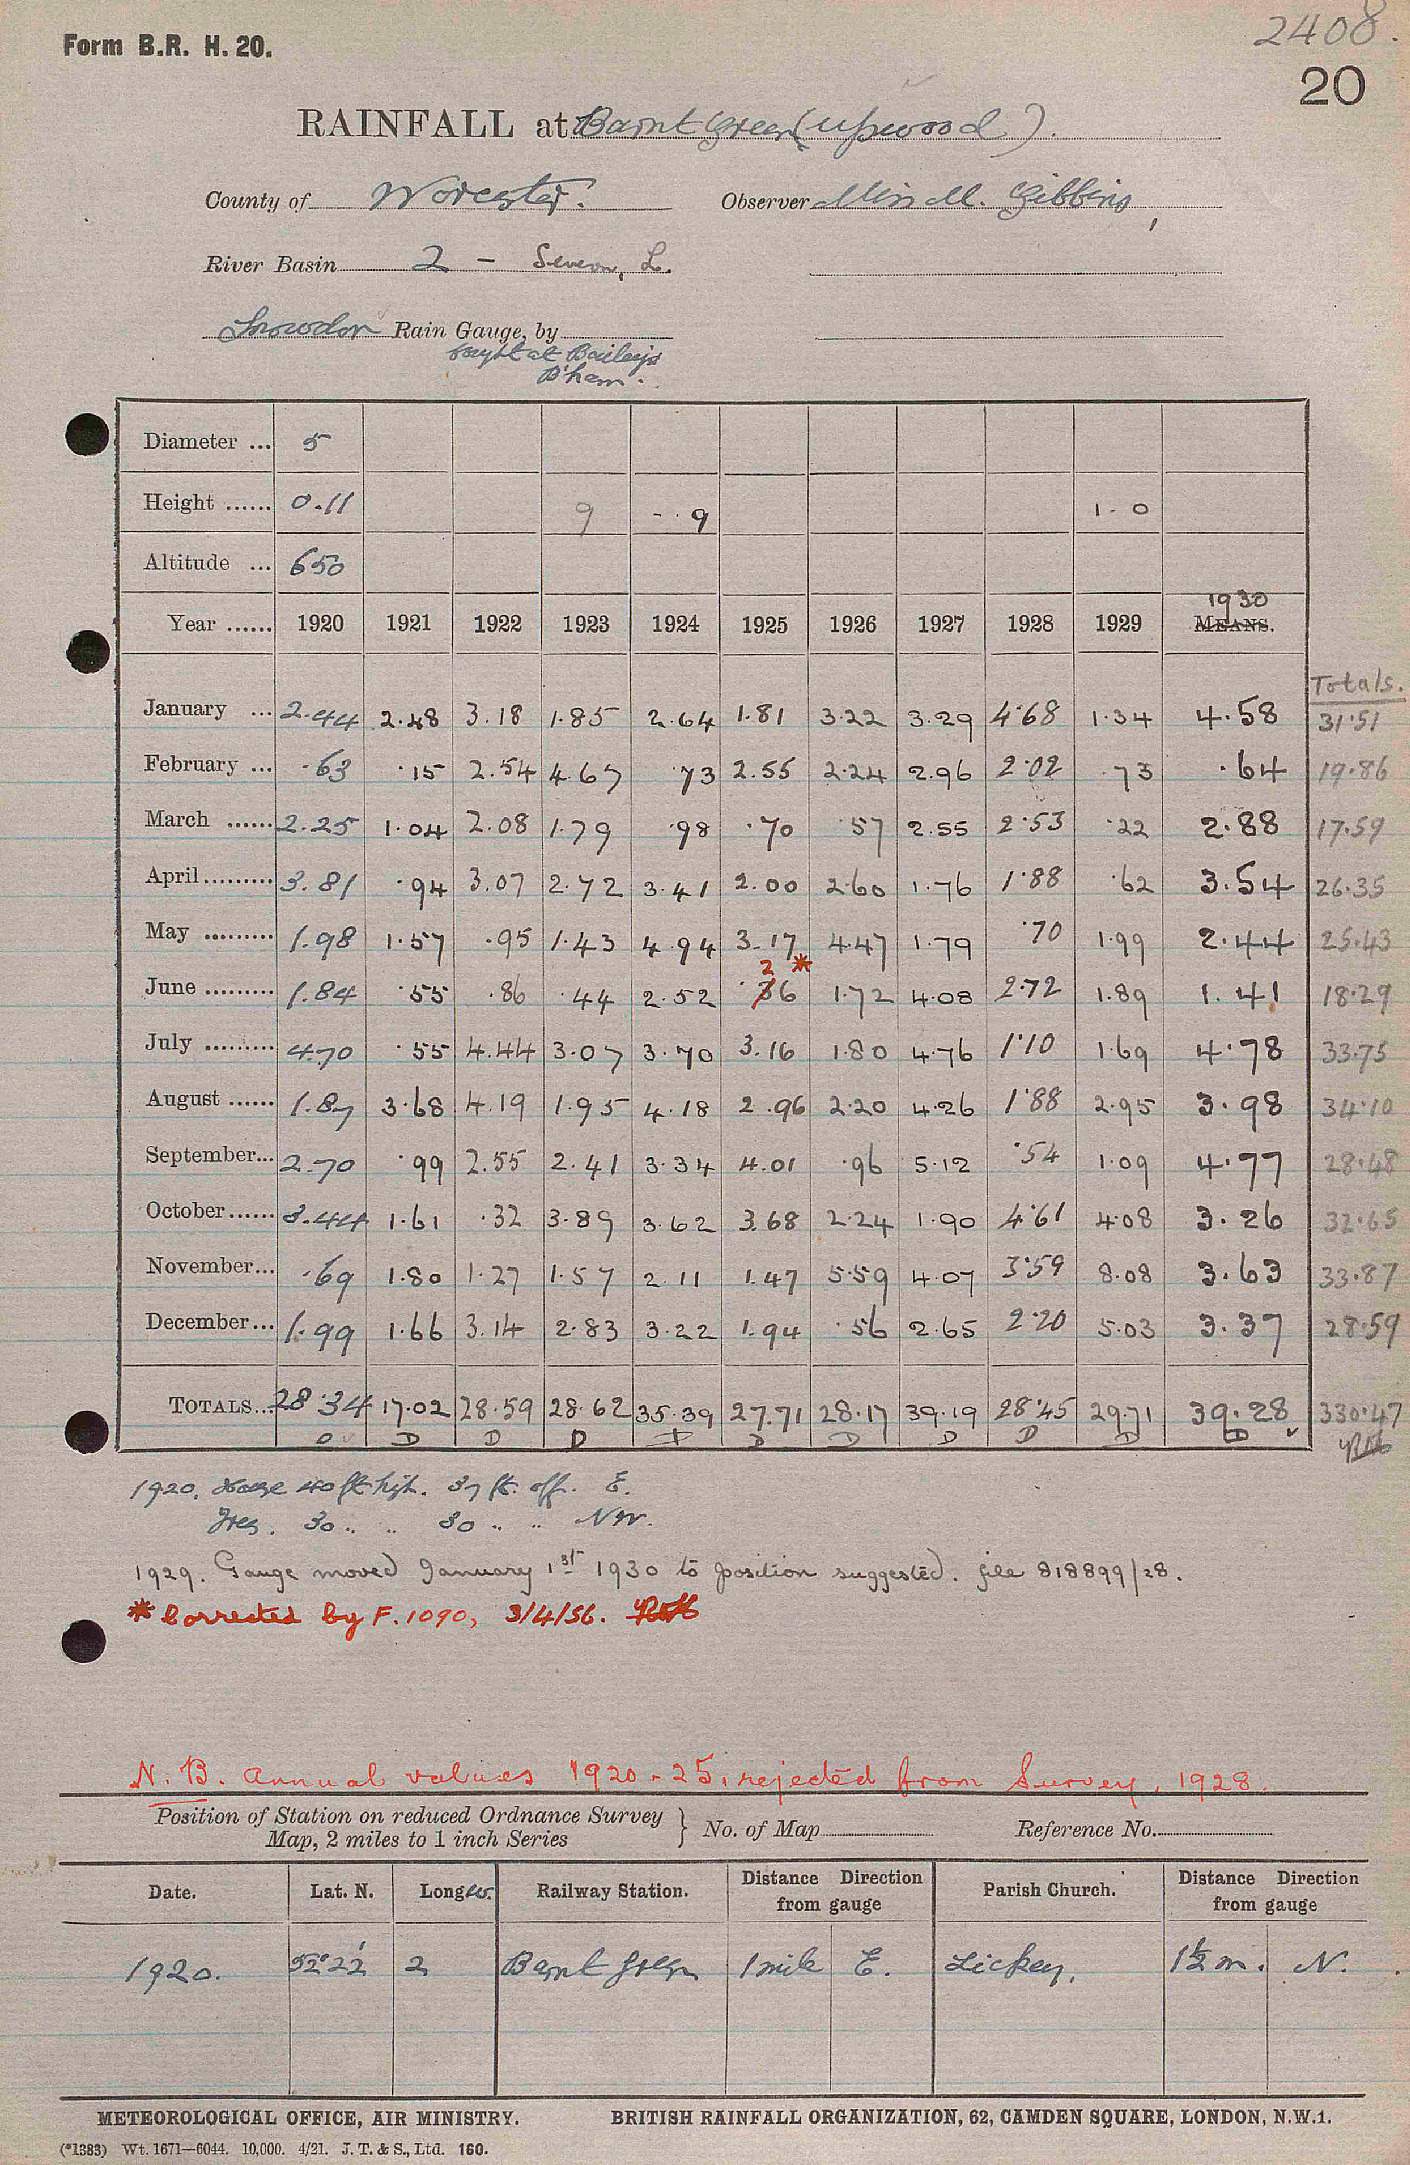 2408.
Form B.R. H. 20.
20
RAINFALL at Barnt Green (Upwood).
County of Worcester. Observer Miss M. Gibbins,
River Basin 2 - Severn, L.
Snowdon Rain Gauge, by
bought at Bailey's
B'ham.
Diameter ... 5
Height ...... 0.11 9 - . 9 1 - 0
Altitude ... 650
1930
Year ...... 1920 1921 1922 1923 1924 1925 1926 1927 1928 1929 MEANS.
Totals.
January ... 2.44 2.48 3.18 1.85 2.64 1.81 3.22 3.29 4.68 1.34 4.58 31.51
February ... .63 .15 2.54 4.67 .73 2.55 2.24 2.96 2.02 .73 .64 19.86
March ...... 2.25 1.04 2.08 1.79 .98 .70 .57 2.55 2.53 .22 2.88 17.59
April ......... 3.81 .94 3.07 2.72 3.41 2.00 2.60 1.76 1.88 .62 3.54 26.35
May ......... 1.98 1.57 .95 1.43 4.94 3.17 4.47 1.79 .70 1.99 2.44 25.43
2 *
June ......... 1.84 .55 .86 .44 2.52 .36 1.72 4.08 2.72 1.89 1.41 18.29
July ......... 4.70 .55 4.44 3.07 3.70 3.16 1.80 4.76 1.10 1.69 4.78 33.75
August ...... 1.87 3.68 4.19 1.95 4.18 2.96 2.20 4.26 1.88 2.95 3.98 34.10
September... 2.70 .99 2.55 2.41 3.34 4.01 .96 5.12 .54 1.09 4.77 28.48
October ...... 3.44 1.61 .32 3.89 3.62 3.68 2.24 1.90 4.61 4.08 3.26 32.65
November... .69 1.80 1.27 1.57 2.11 1.47 5.59 4.07 3.59 8.08 3.63 33.87
December ... 1.99 1.66 3.14 2.83 3.22 1.94 .56 2.65 2.20 5.03 3.37 28.59
TOTALS... 28.34 17.02 28.59 28.62 35.39 27.71 28.17 39.19 28.45 29.71 39.28 330.47
D D D D D D D D D D D
1920. House 40 ft high. 37 ft. off. E.
Trees. 30 .. .. 30 .. .. NW.
1929. Gauge moved January 1st 1930 to position suggested. file 818899/28.
* Corrected by F. 1090, 3/4/56.
N.B. Annual values 1920-25, rejected from Survey, 1928.
Position of Station on reduced Ordnance Survey
Map, 2 miles to 1 inch Series } No. of Map Reference No.
Date. Lat. N. Long W. Railway Station. Distance Direction from gauge Parish Church. Distance Direction from gauge
1920. 52° 22' 2 Barnt Green 1 mile E. Lickey. 1½ m. N.
METEOROLOGICAL OFFICE, AIR MINISTRY. BRITISH RAINFALL ORGANIZATION, 62, CAMDEN SQUARE, LONDON, N.W.1.
(*1383) Wt. 1671—6044. 10,000. 4/21. J. T. & S., Ltd. 160.